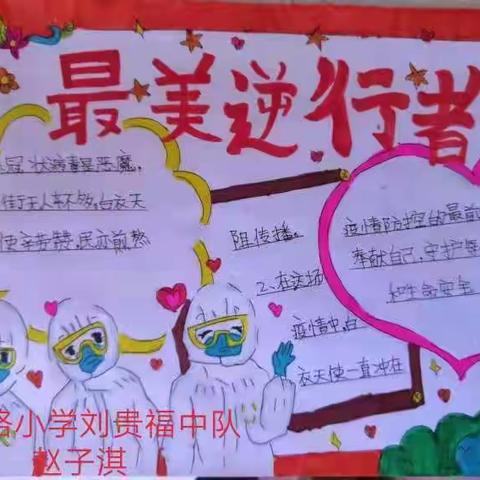 最美逆行者
冠状病毒是恶魔,
人车不够,白衣天
使辛苦赞,
阻传播。
2、在这场
疫情中,白
衣天使一直冲在
疫情防控的最前
奉献自己,守护
和生命安全
路小学刘贵福中队
赵子淇